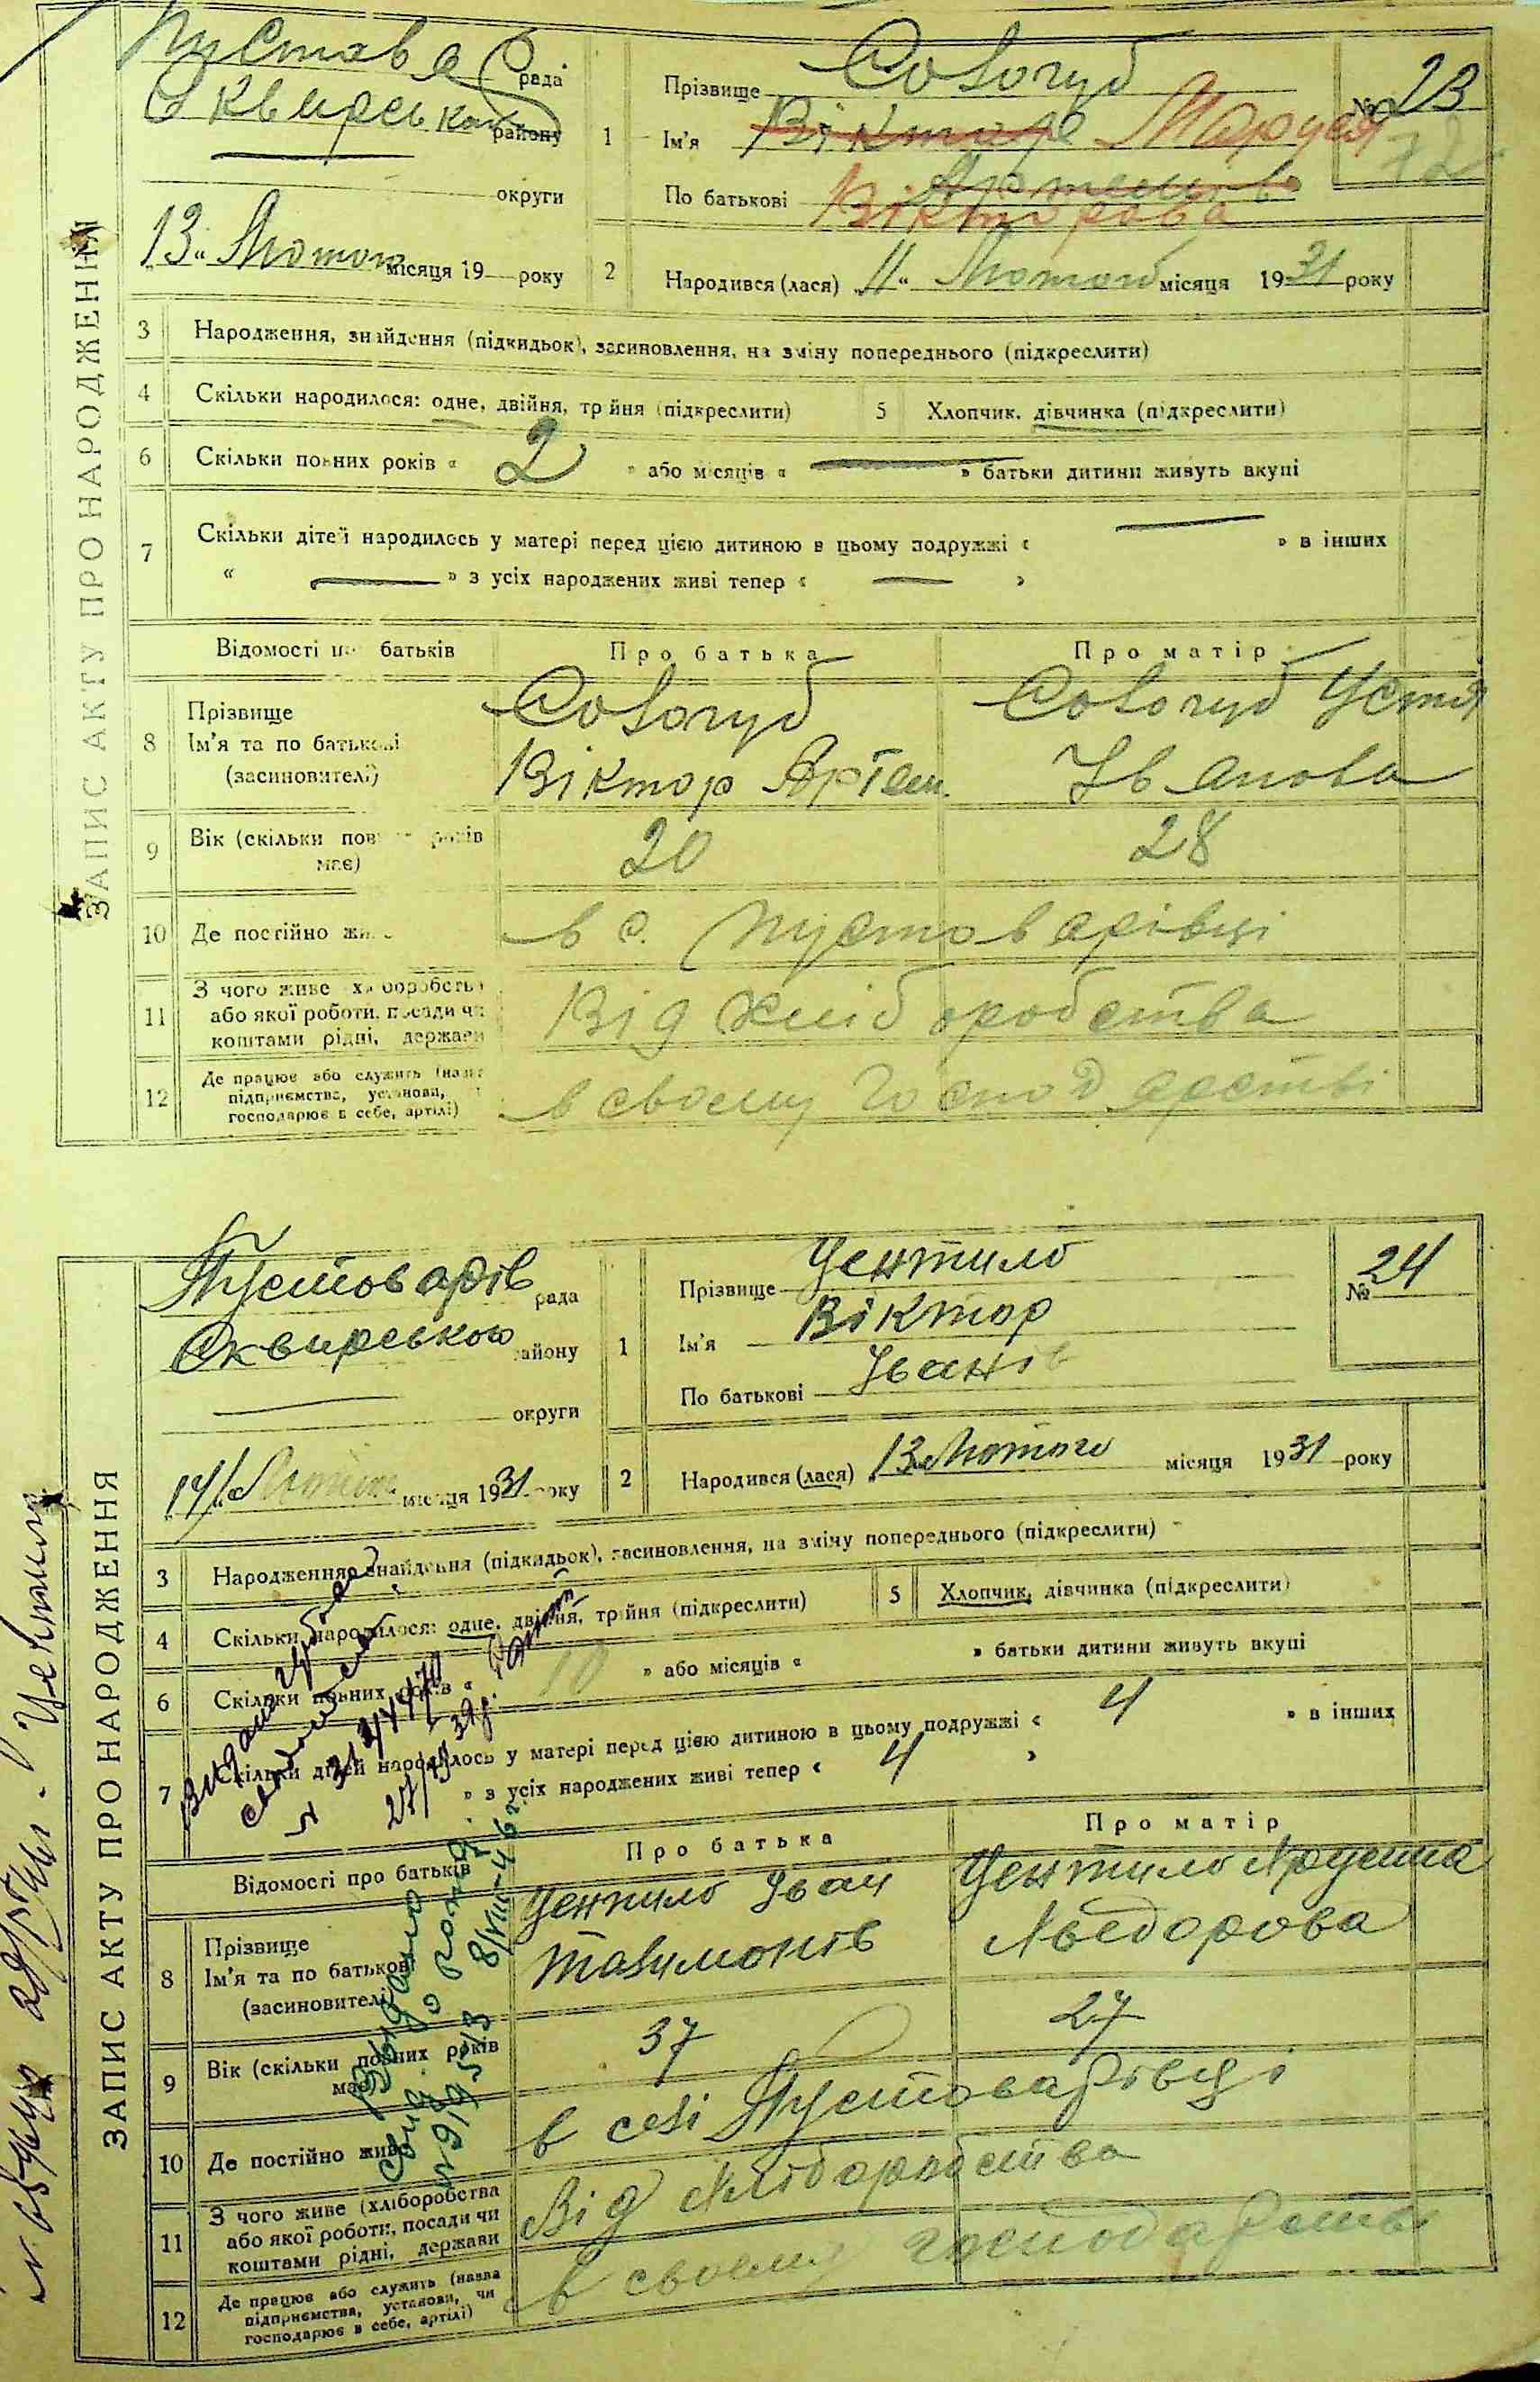 ЗАПИС АКТУ ПРО НАРОДЖЕННЯ
Пустов рада
Сквирськ району
округи
"13" Лютого місяця 19 року
1 Прізвище Сологуб
№ 23
Ім'я Віктор Маруся
По батькові Артемів
Вікторова
2 Народився (лася) "11" Лютого місяця 1931 року
3 Народження, знайдення (підкидьок), засиновлення, на зміну попереднього (підкреслити)
4 Скільки народилося: одне, двійня, трійня (підкреслити) 5 Хлопчик, дівчинка (підкреслити)
6 Скільки повних років « 2 » або місяців « — » батьки дитини живуть вкупі
7 Скільки дітей народилось у матері перед цією дитиною в цьому подружжі « — » в інших
« — » з усіх народжених живі тепер « — »
Відомості про батьків Про батька Про матір
8 Прізвище Ім'я та по батькові (засиновителі)
Сологуб Сологуб Устя
Віктор Артем. Іванова
9 Вік (скільки повних років має) 20 28
10 Де постійно живе в с. Пустоварівці
11 З чого живе (хліборобства або якої роботи, посади чи коштами рідні, держави
Від хліборобства
12 Де працює або служить (назва підприємства, установи, господарює в себе, артілі)
в своєму господарстві
ЗАПИС АКТУ ПРО НАРОДЖЕННЯ
Пустоварів рада
Сквирського району
округи
14 Лютого місяця 1931 року
1 Прізвище Центило
№ 24
Ім'я Віктор
По батькові Іванів
2 Народився (лася) 13 Лютого місяця 1931 року
3 Народження, знайдення (підкидьок), засиновлення, на зміну попереднього (підкреслити)
4 Скільки народилося: одне, двійня, трійня (підкреслити) 5 Хлопчик, дівчинка (підкреслити)
6 Скільки повних років « 10 » або місяців « » батьки дитини живуть вкупі
7 Скільки дітей народилось у матері перед цією дитиною в цьому подружжі « 4 » в інших
» з усіх народжених живі тепер « 4 »
Відомості про батьків Про батька Про матір
8 Прізвище Ім'я та по батькові (засиновителі)
Центило Іван Центило
Федорова
9 Вік (скільки повних років має) 37 27
10 Де постійно живе в селі Пустоварівці
11 З чого живе (хліборобства або якої роботи, посади чи коштами рідні, держави
Від хліборобства
12 Де працює або служить (назва підприємства, установи, чи господарює в себе, артілі)
в своєму господарстві
Видано
8/VIII-46